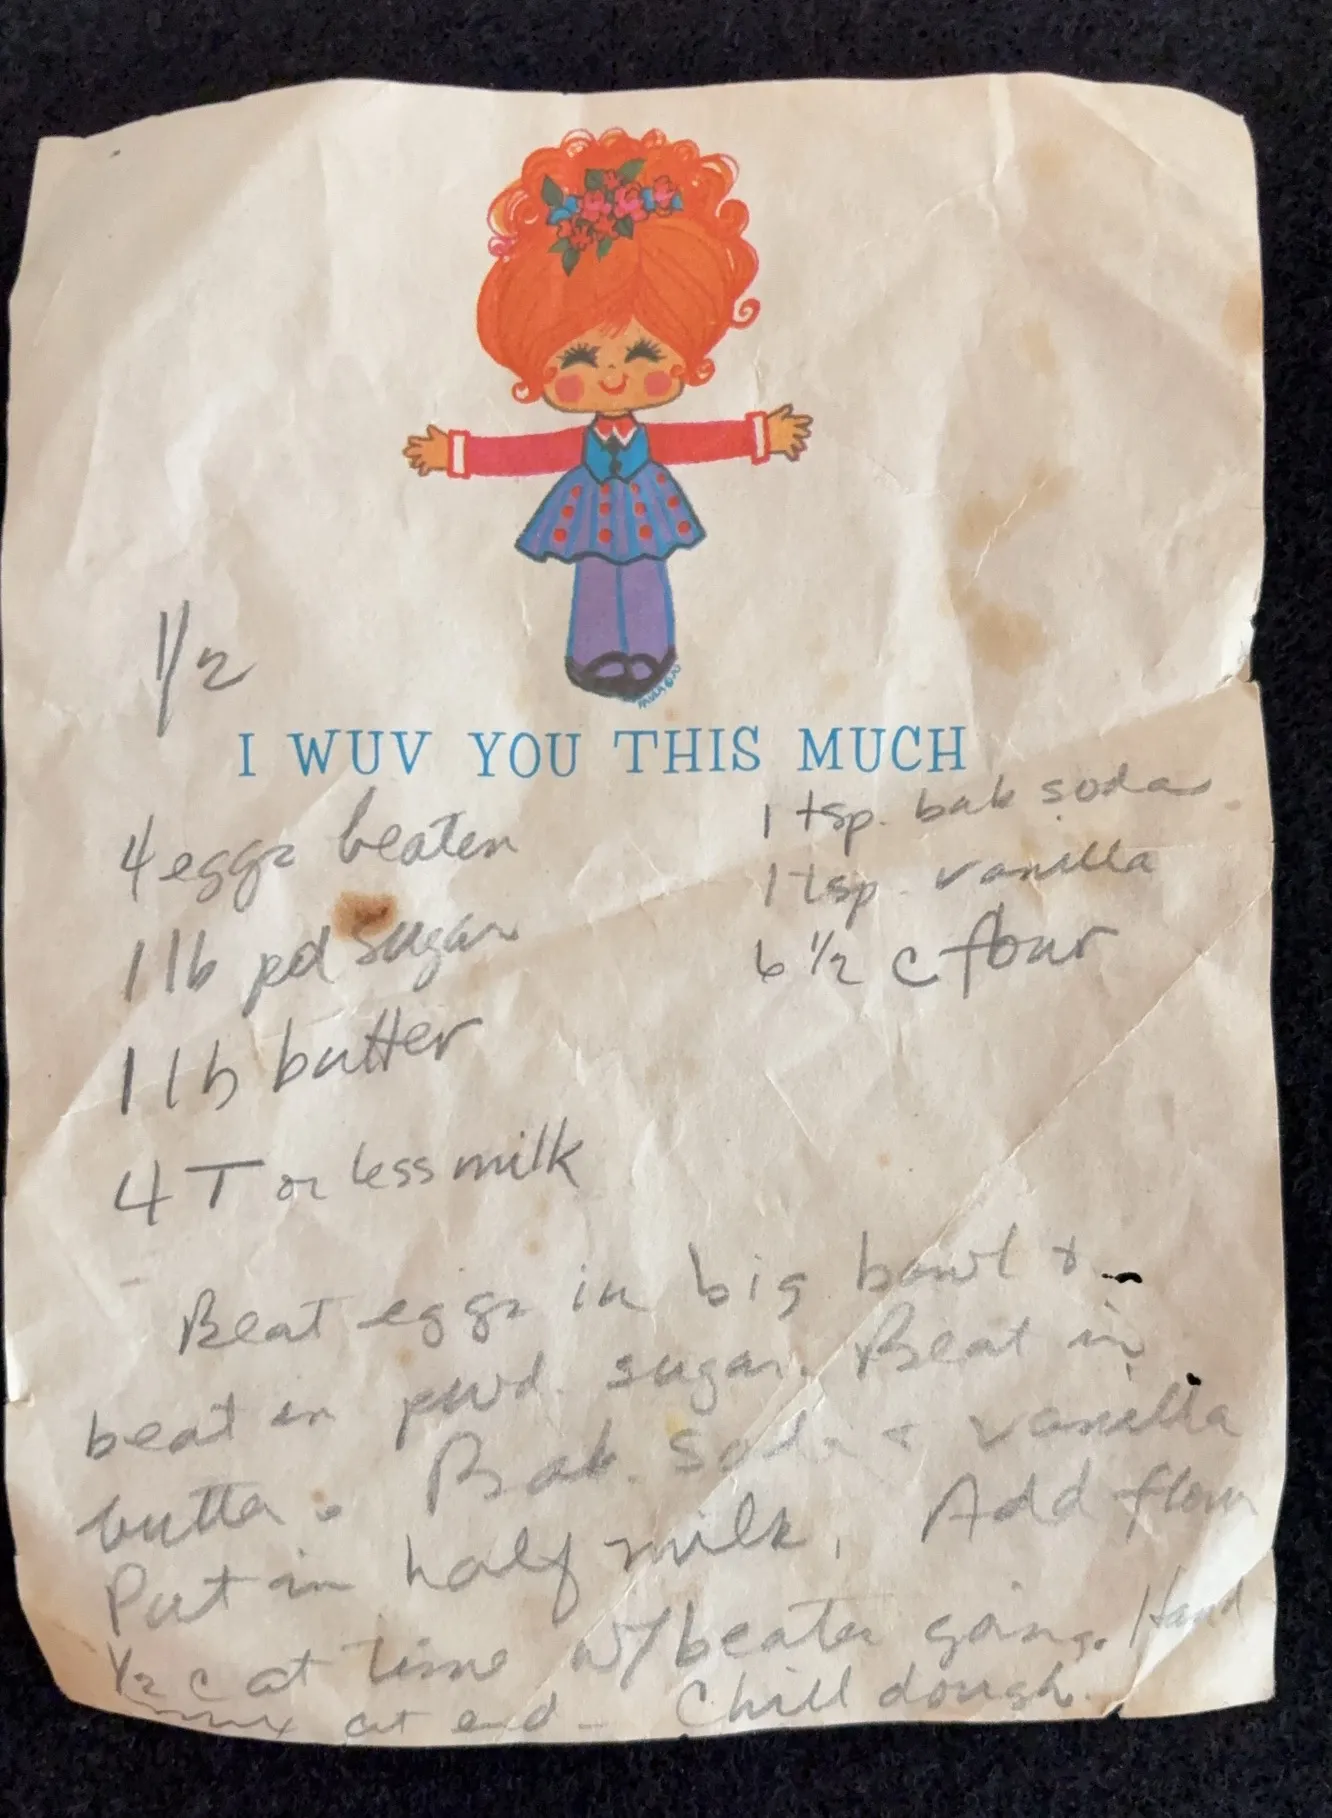 1/2
I WUV YOU THIS MUCH
4 eggs beaten
1 lb pd sugar
1 lb butter
4 T or less milk
1 tsp. bak soda
1 tsp. vanilla
6 1/2 c flour
Beat eggs in big bowl &
beat in pwd. sugar. Beat in
butter. Bak. soda & vanilla
Put in half milk. Add flour
1/2 c at time w/beater going. Hand
mix at end - Chill dough.